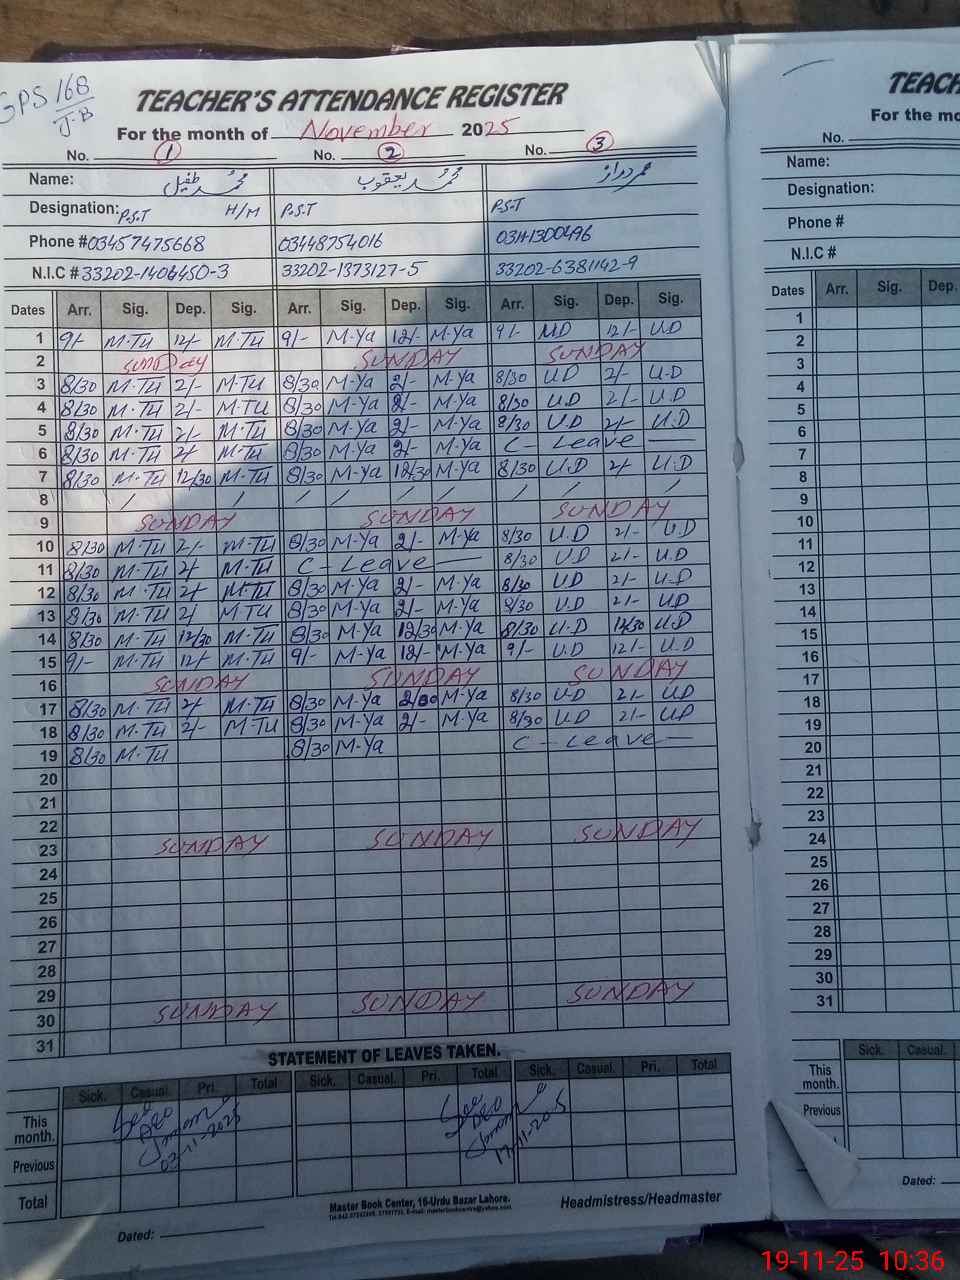 GPS 168
J-B
TEACHER'S ATTENDANCE REGISTER
For the month of November 2025
No. 1 No. 2 No. 3
Name: محمد طفیل محمد یعقوب عمر دراز
Designation: P.S.T H/M P.S.T P.S.T
Phone # 03457475668 03448754016 03111300496
N.I.C # 33202-1406450-3 33202-1373127-5 33202-6381142-9
Dates Arr. Sig. Dep. Sig. Arr. Sig. Dep. Sig. Arr. Sig. Dep. Sig.
1 9/- M-Tu 12/- M-Tu 9/- M-Ya 12/- M-Ya 9/- U.D 12/- U.D
2 SUNDAY SUNDAY SUNDAY
3 8/30 M-Tu 2/- M-Tu 8/30 M-Ya 2/- M-Ya 8/30 U.D 2/- U.D
4 8/30 M-Tu 2/- M-Tu 8/30 M-Ya 2/- M-Ya 8/30 U.D 2/- U.D
5 8/30 M-Tu 2/- M-Tu 8/30 M-Ya 2/- M-Ya 8/30 U.D 2/- U.D
6 8/30 M-Tu 2/- M-Tu 8/30 M-Ya 2/- M-Ya C - Leave —
7 8/30 M-Tu 12/30 M-Tu 8/30 M-Ya 12/30 M-Ya 8/30 U.D 2/- U.D
8 / / / / / / / / /
9 SUNDAY SUNDAY SUNDAY
10 8/30 M-Tu 2/- M-Tu 8/30 M-Ya 2/- M-Ya 8/30 U.D 2/- U.D
11 8/30 M-Tu 2/- M-Tu C - Leave — 8/30 U.D 2/- U.D
12 8/30 M-Tu 2/- M-Tu 8/30 M-Ya 2/- M-Ya 8/30 UD 2/- U.D
13 8/30 M-Tu 2/- M-Tu 8/30 M-Ya 2/- M-Ya 8/30 U.D 2/- U.D
14 8/30 M-Tu 12/30 M-Tu 8/30 M-Ya 12/30 M-Ya 8/30 U.D 12/30 U.D
15 9/- M-Tu 12/- M-Tu 9/- M-Ya 12/- M-Ya 9/- U.D 12/- U.D
16 SUNDAY SUNDAY SUNDAY
17 8/30 M-Tu 2/- M-Tu 8/30 M-Ya M-Ya 8/30 U.D 2/- UD
18 8/30 M-Tu 2/- M-Tu 8/30 M-Ya 2/- M-Ya 8/30 U.D 2/- UD
19 8/30 M-Tu 8/30 M-Ya C - Leave —
20
21
22
23 SUNDAY SUNDAY SUNDAY
24
25
26
27
28
29
30 SUNDAY SUNDAY SUNDAY
31
STATEMENT OF LEAVES TAKEN.
Sick. Casual. Pri. Total Sick. Casual. Pri. Total Sick. Casual. Pri. Total
This month.
Previous
Total
See
DEO
03-11-2025
See
DEO
17-11-2025
Dated:
Master Book Center, 16-Urdu Bazar Lahore.
Headmistress/Headmaster
TEACH
For the mo
No.
Name:
Designation:
Phone #
N.I.C #
Dates Arr. Sig. Dep.
1
2
3
4
5
6
7
8
9
10
11
12
13
14
15
16
17
18
19
20
21
22
23
24
25
26
27
28
29
30
31
Sick. Casual
This month.
Previous
Dated:
19-11-25 10:36